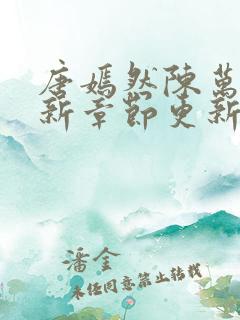 唐嫣然陳萬
新章節更新
潘金
未經同意禁止轉載